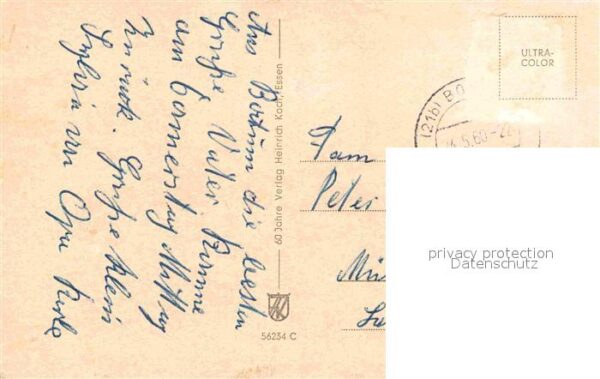 Aus Bochum die besten
Grüße Vater. Komme
am Donnerstag Mittag
Zurück. Grüße klein
Sylvia von Opa
60 Jahre Verlag Heinrich Koch, Essen
56234 C
ULTRA-
COLOR
(21b) BO
.5.60-22
Fam
Peter
privacy protection
Datenschutz